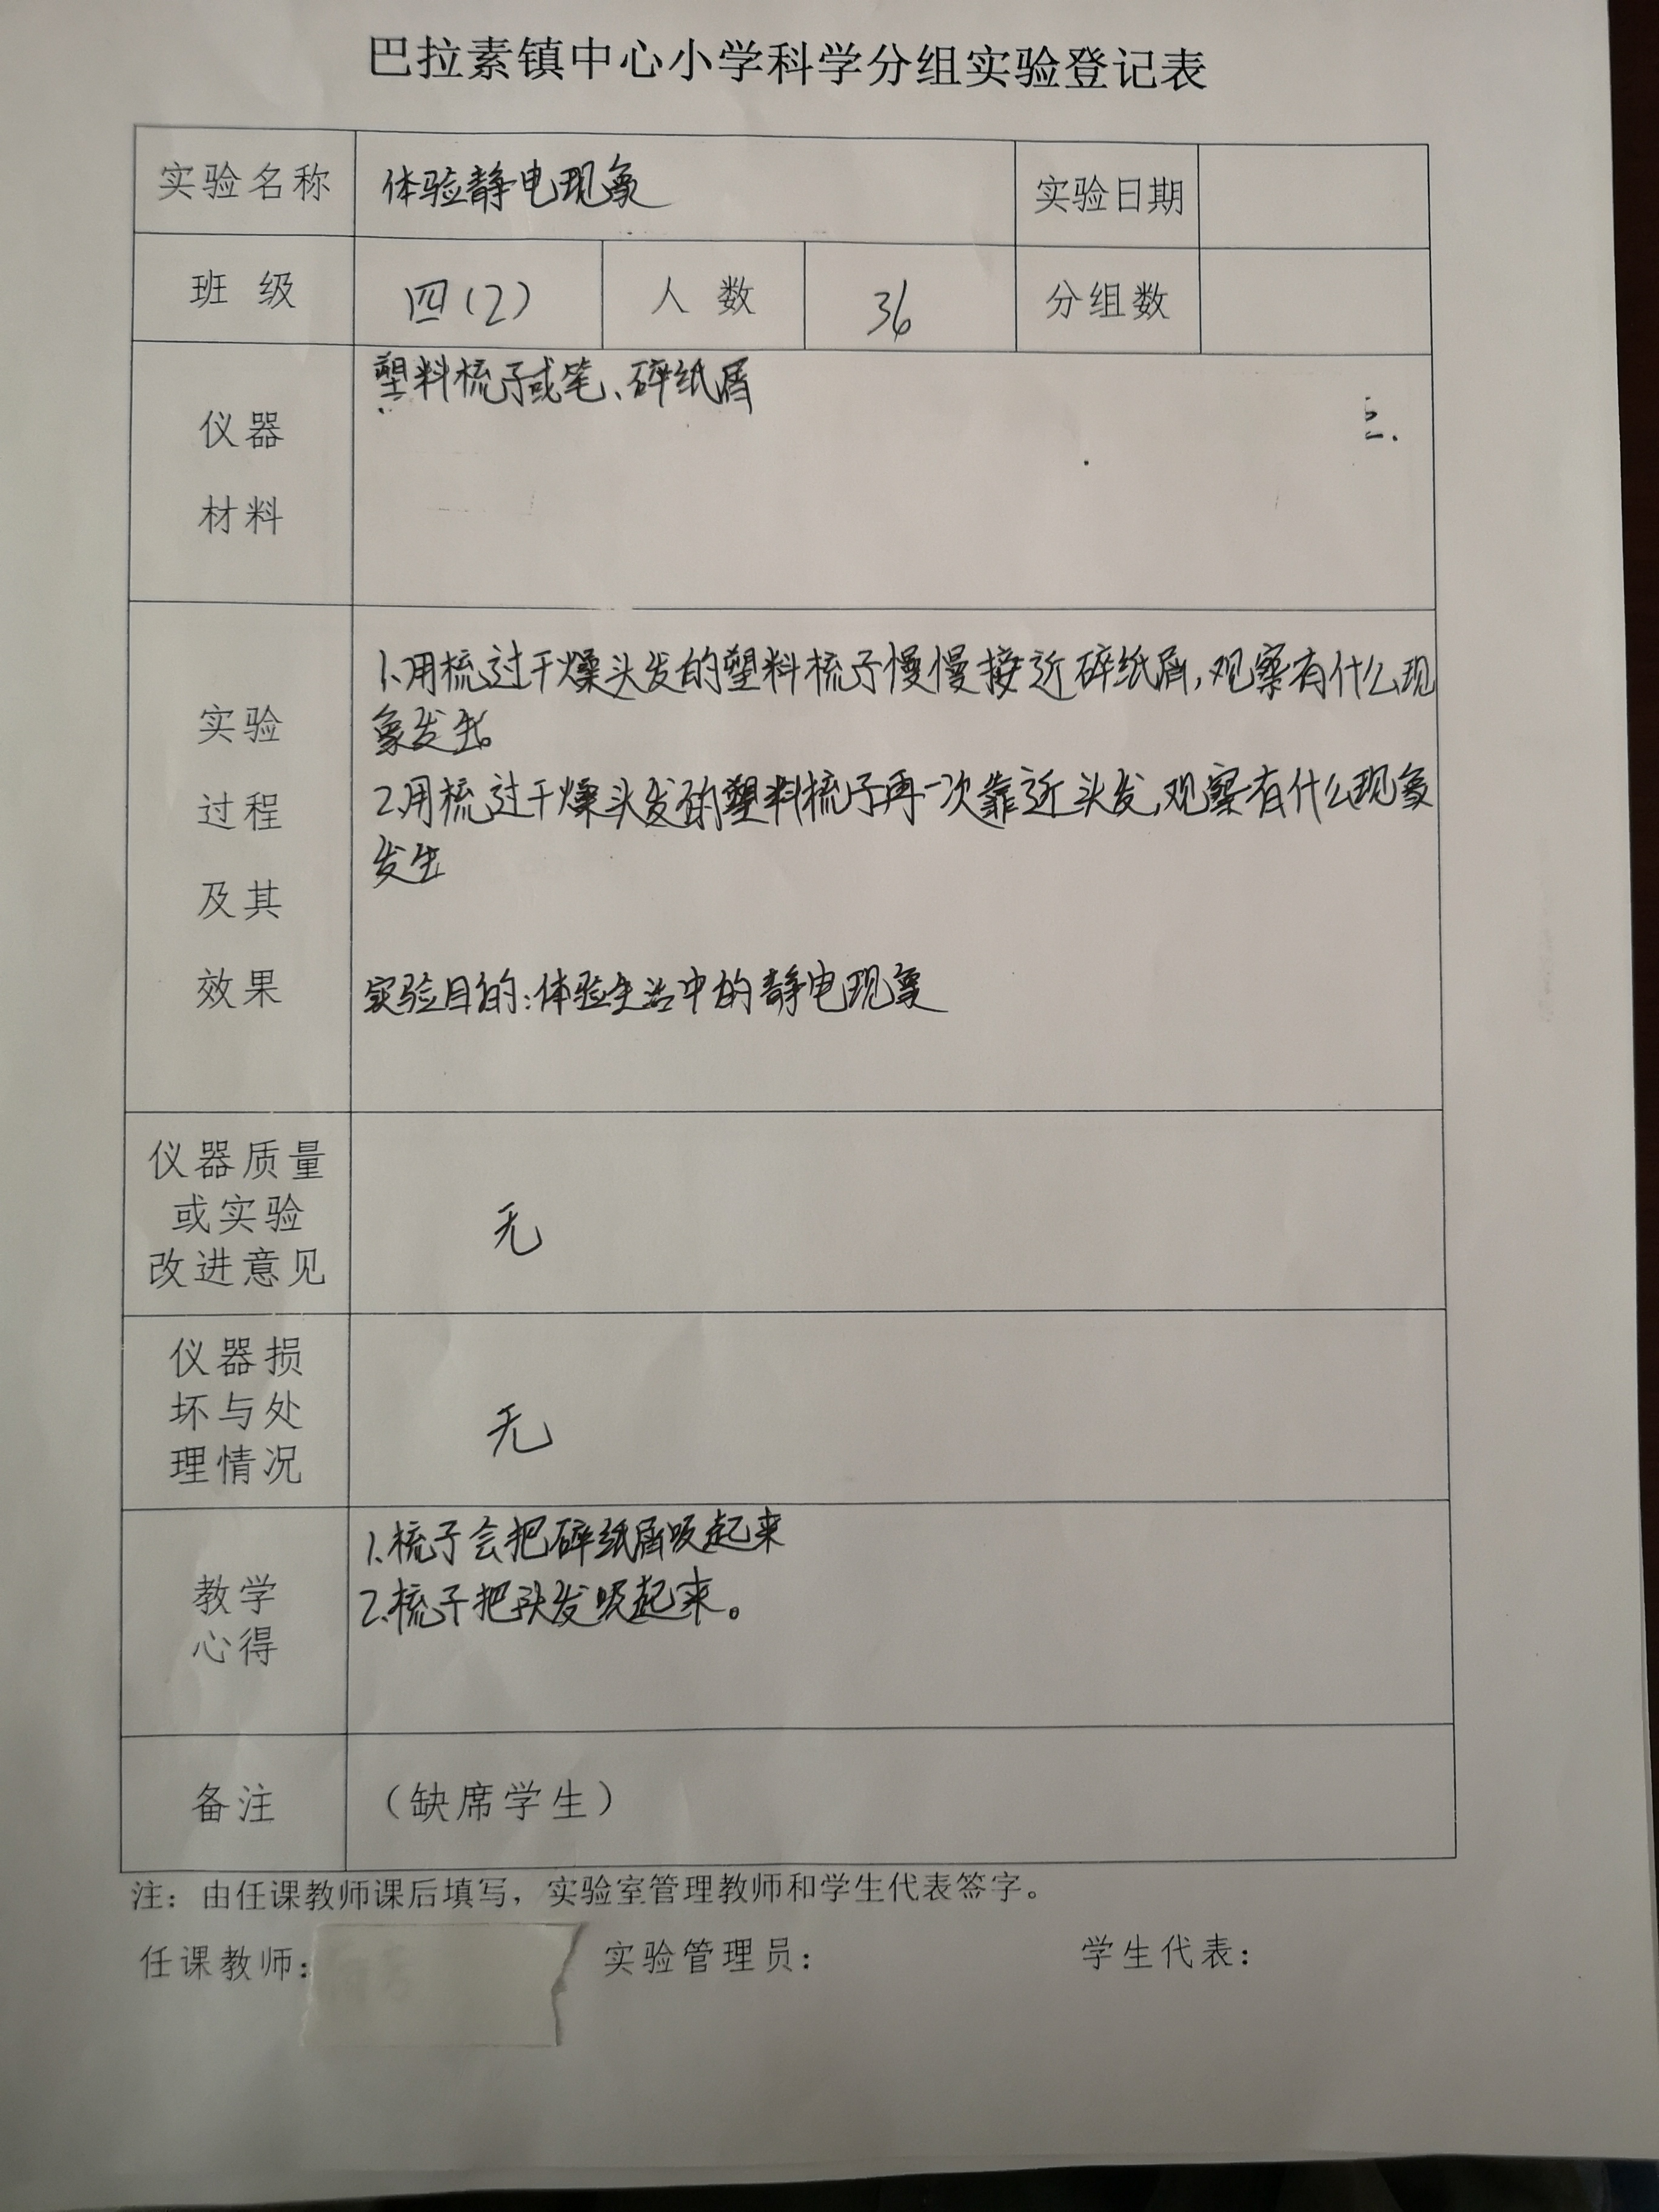 巴拉素镇中心小学科学分组实验登记表
实验名称 体验静电现象 实验日期
班 级 四(2) 人 数 36 分组数
塑料梳子或笔、碎纸屑
仪器
材料
1.用梳过干燥头发的塑料梳子慢慢接近碎纸屑,观察有什么现
象发生。
2.用梳过干燥头发的塑料梳子再一次靠近头发,观察有什么现象
发生
实验
过程
及其
效果
实验目的:体验生活中的静电现象
仪器质量
或实验
改进意见
无
仪器损
坏与处
理情况
无
1.梳子会把碎纸屑吸起来
2.梳子把头发吸起来。
教学
心得
备注 (缺席学生)
注：由任课教师课后填写，实验室管理教师和学生代表签字。
任课教师： 实验管理员： 学生代表：